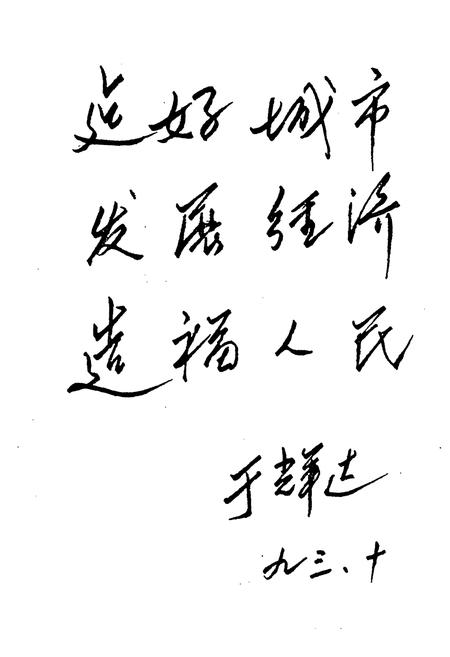 迠好城市
发展经济
造福人民
于辉达
九三、十